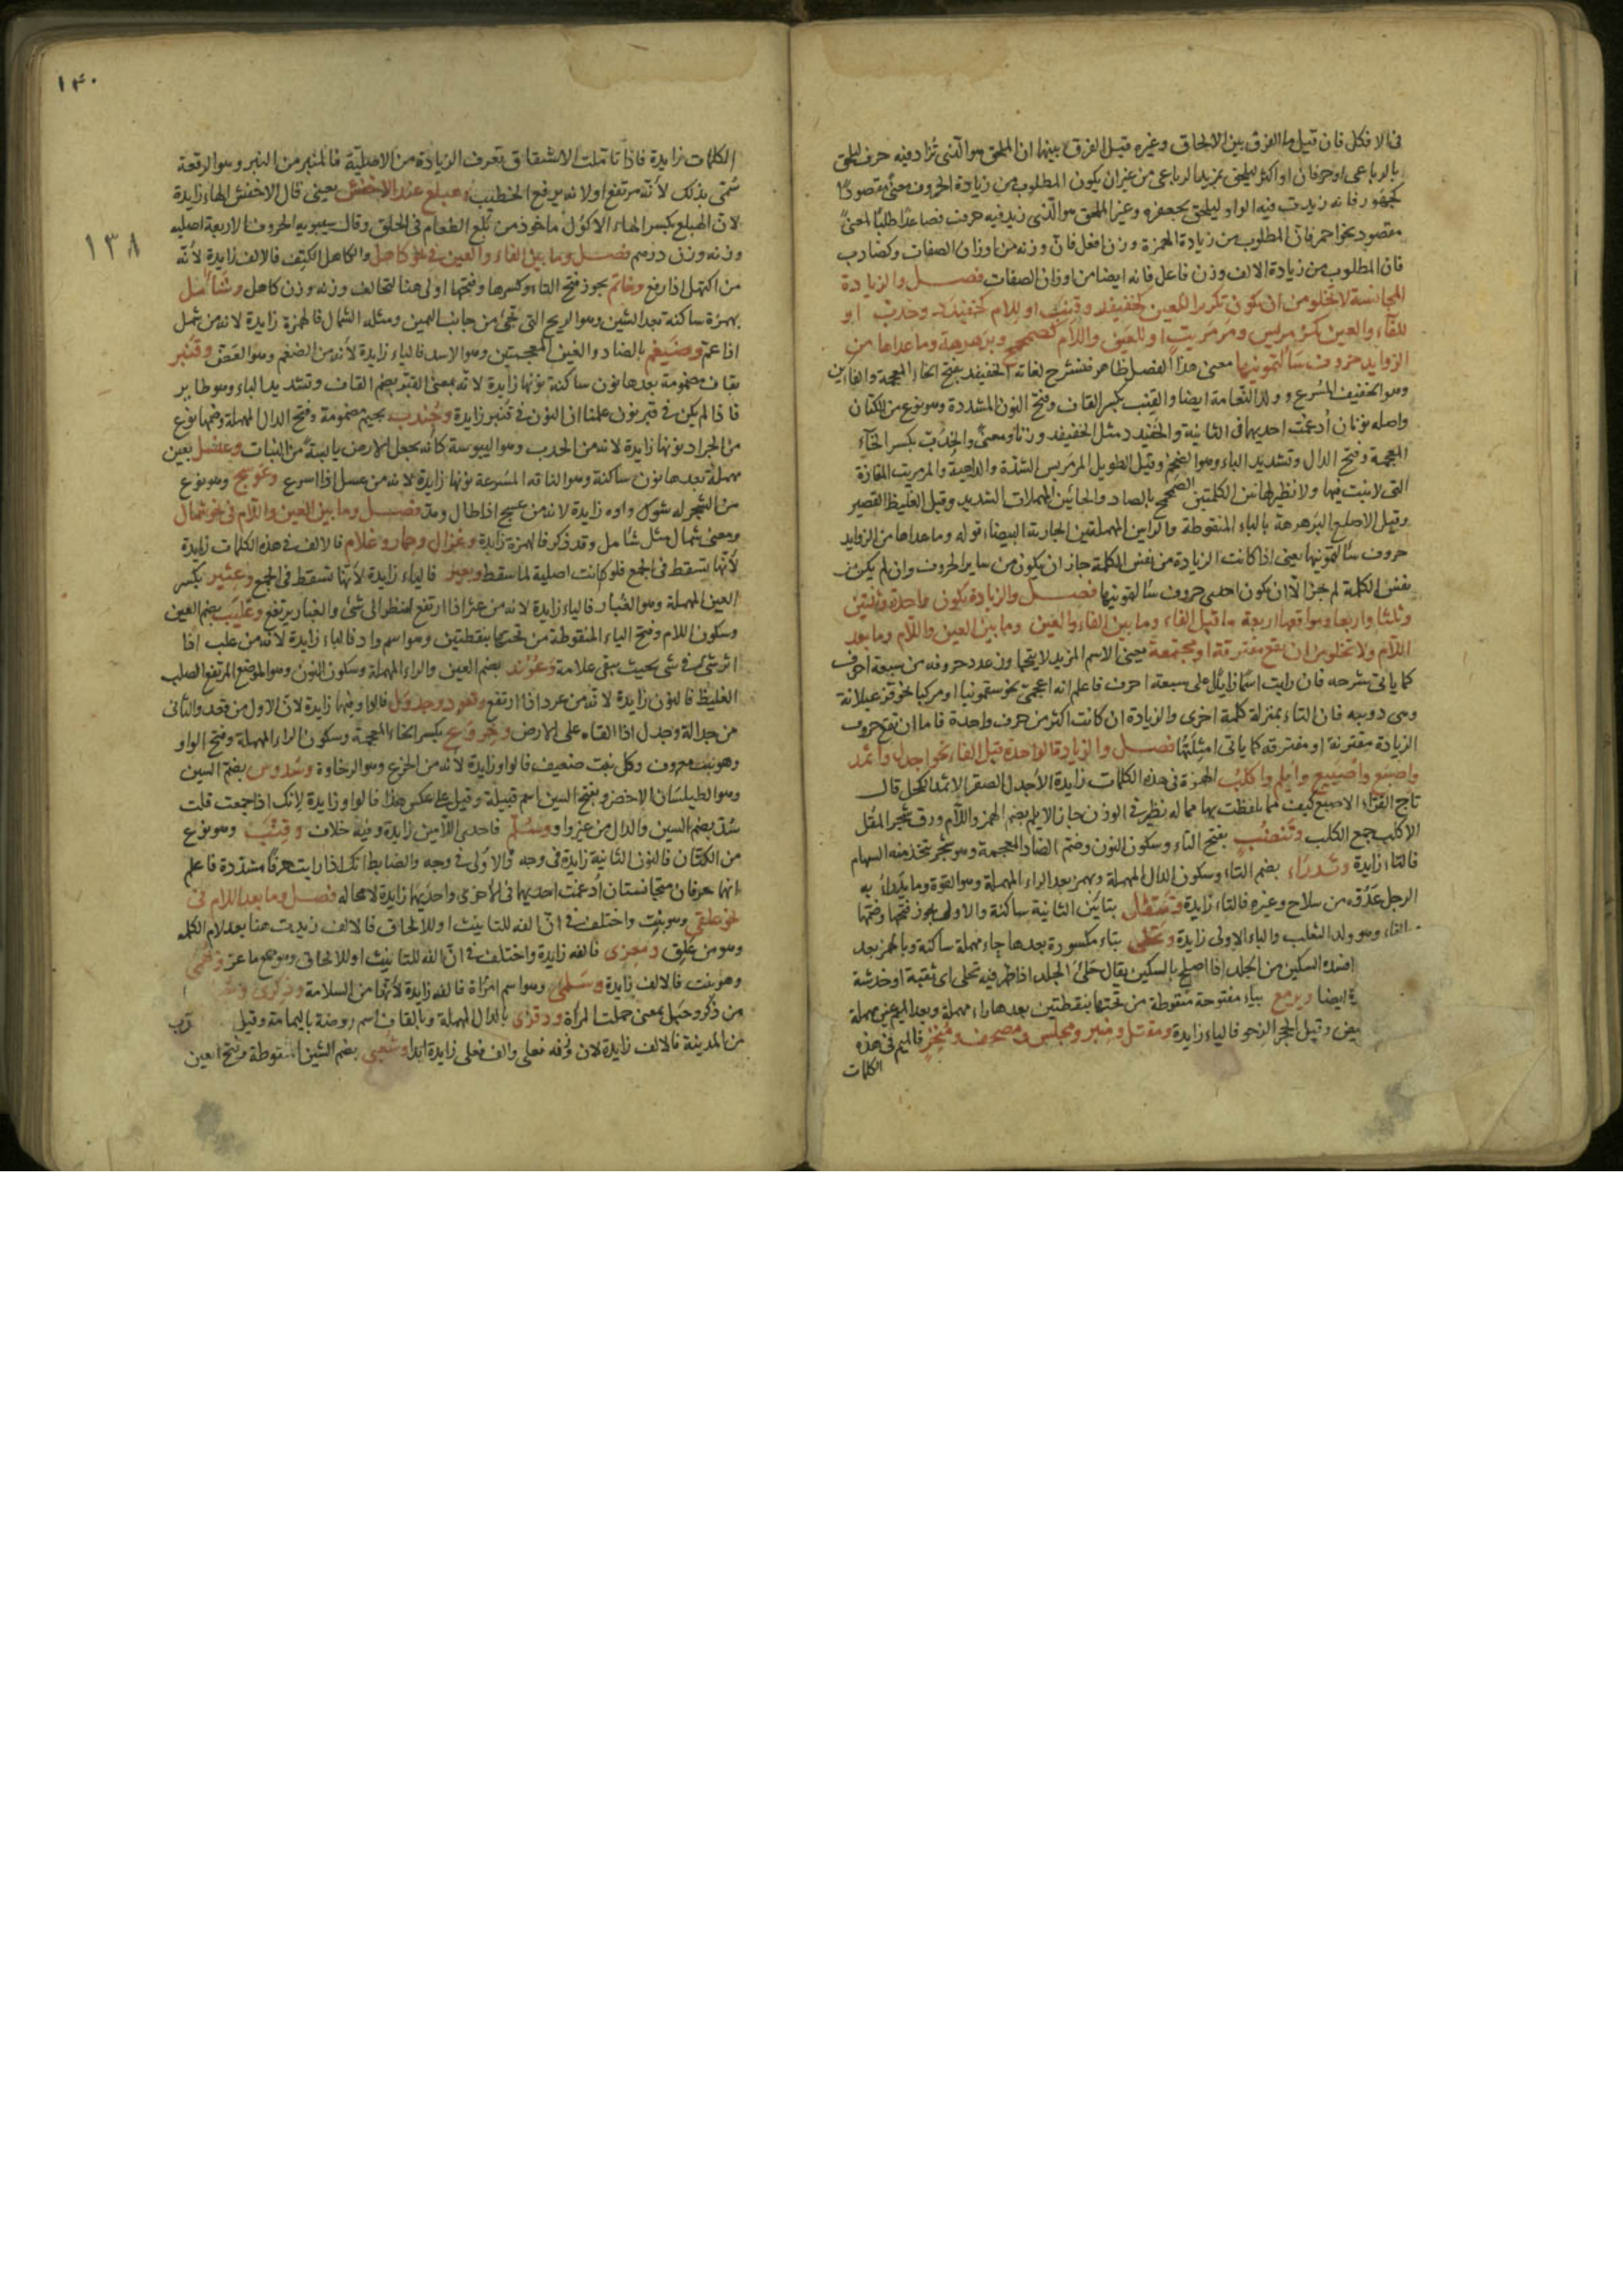 فى الافكل فان قيل ما الفرق بين الالحاق وغيره قيل الفرق بينهما ان الملحق هو الذى تزاد فيه حرف ليلحق
بالرباعى او حرفان او اكثر ليلحق بمزيد الرباعى من غير ان يكون المطلوب من زيادة الحروف معنى مقصودا
كجهور فانه زيدت فيه الواو ليلحق بجعفر وغير الملحق هو الذى زيد فيه حرف فصاعدا طلبا لمعنى
مقصود نحو احمر فان المطلوب من زيادة الهمزة وزن افعل فان وزنه من اوزان الصفات وكضارب
فان المطلوب من زيادة الالف وزن فاعل فانه ايضا من اوزان الصفات فصل والزيادة
المجانسة لا تخلو من ان تكون تكريرا للعين كخفيفد وقنب او للام كخفيدد وخدب او
للفاء والعين كمرمريس ومرمريت او للعين واللام كصمحمح وبرهرهة وما عداها من
الزوايد حروف سألتمونيها معنى هذا الفصل ظاهر فنشرح لغاته الخفيفد بفتح الخاء المعجمة والفاءين
وهو الخفيف المسرع وولد النعامة ايضا والقنب بكسر القاف وفتح النون المشددة وهو نوع من الكتان
واصله نونان أدغمت احديهما فى الثانية والخفيدد مثل الخفيفد وزنا ومعنى والخدب بكسر الخاء
المعجمة وفتح الدال وتشديد الباء وهو الضخم وقيل الطويل المرمريس الشدة والداهية والمرمريت المفازة
التى لا نبت فيها ولا نظير لهاتين الكلمتين الصمحمح بالصاد والحائين المهملات الشديد وقيل الغليظ القصير
وقيل الاصلع البرهرهة بالباء المنقوطة والرايين المهملتين الجارية البيضاء قوله وما عداها من الزوايد
حروف سألتمونيها يعنى اذا كانت الزيادة من نفس الكلمة جاز ان يكون من ساير الحروف وان لم يكن من
نفس الكلمة لم يجز الا ان تكون احدى حروف سألتمونيها فصل والزيادة تكون واحدة وثنتين
وثلثا واربعا ومواقعها اربعة ما قبل الفاء وما بين الفاء والعين وما بين العين واللام وما بعد
اللام ولا تخلو من ان تقع مفترقة او مجتمعة يعنى الاسم المزيد لا يتجاوز عدد حروفه من سبعة احرف
كما ياتى شرحه فان رايت اسما زايدا على سبعة احرف فاعلم انه اعجمى نحو سقمونيا او مركبا نحو قرعبلانة
وهى دويبه فان التاء بمنزلة كلمة اخرى والزيادة ان كانت اكثر من حرف واحدة فاما ان تقع حروف
الزيادة مقترنة او مفترقه كما ياتى امثلتها فصل والزيادة الواحدة قبل الفاء نحو اجدل واثمد
واصبع وابلم واكلب الهمزة فى هذه الكلمات زايدة الاجدل الصقر الاثمد الكحل قال
تاج القراء الاصبع كيف لما تلفظت بها مما له نظير فى الوزن جاز الابلم بضم الهمز واللام ورق شجر المقل
الاكلب جمع الكلب وتنضب بفتح التاء وسكون النون وضم الضاد المعجمة وهو شجر يتخذ منه السهام
فالتاء زايدة وتدراء بضم التاء وسكون الدال المهملة وبهمز بعد الراء المهملة وهو القوة وما يدرأ به
الرجل عدوه من سلاح وغيره فالتاء زايدة وتتفل بتايين الثانية ساكنة والاولى يجوز فتحها وضمها
الفاء وهو ولد الثعلب والتاء الاولى زايدة وتحلئ بتاء مكسورة بعدها حاء مهملة ساكنة وبالهمز بعد
افسده السكين من الجلد اذا اصلح بالسكين يقال حلئ الجلد اذا ظهر فيه تحلئ اى ثقبة او خدشة
ايضا ويرمع بياء مفتوحة منقوطة من تحتها بنقطتين بعدها راء مهملة وبعد الميم عين مهملة
وقيل الحجر الرخو فالياء زايدة ومقتل ومنبر ومجلس ومصحف ومنخر فالميم فى هذه
الكلمات
١٤٠
١٣٨
الكلمات زايدة فاذا تاملت الاشتقاق تعرف الزيادة من الاصلية فالمنبر من النبر وهو الرفعة
سمى بذلك لانه مرتفع او لانه يرفع الخطيب وهبلع عند الاخفش يعنى قال الاخفش الهاء زايدة
لان الهبلع بكسر الهاء الاكول ماخوذ من بلع الطعام فى الحلق وقال سيبويه الحروف الاربعة اصليه
وزنه وزن درهم فصل وما بين الفاء والعين فى نحو كاهل والكاهل الكتف فالالف زايدة لانه
من اكتهل اذا رفع وخاتم يجوز فتح التاء وكسرها وفتحها اولى هنا لتخالف وزنه وزن كاهل وشأمل
بهمزة ساكنة بعد الشين وهو الريح التى تجئ من جانب اليمين ومثله الشمال فالهمزة زايدة لانه من شمل
اذا عم وضيغم بالضاد والغين المعجمتين وهو الاسد فالياء زايدة لانه من الضغم وهو العض وقنبر
بقاف مضمومة بعدها نون ساكنة نونها زايدة لانه بمعنى القبر بضم القاف وتشديد الباء وهو طاير
فاذا لم يكن فى قبر نون علمنا ان النون فى قنبر زايدة وجندب بجيم مضمومة وفتح الدال المهملة وضمها نوع
من الجراد نونها زايدة لانه من الجدب وهو اليبوسة كانه يجعل الارض يابسة من النبات وعنسل بعين
مهملة بعدها نون ساكنة وهو الناقة المسرعة نونها زايدة لانه من عسل اذا اسرع وعوسج وهو نوع
من الشجر له شوك واوه زايدة لانه من عسج اذا طال ومد فصل وما بين العين واللام فى نحو شمأل
ومعنى شمأل مثل شأمل وقد ذكر فالهمزة زايدة وغزال وحمار وغلام فالالف فى هذه الكلمات زايدة
لانها تسقط فى الجمع فلو كانت اصلية لما سقط وبعير فالياء زايدة لانها تسقط فى الجمع وعثير بكسر
العين المهملة وهو الغبار فالياء زايدة لانه من عثر اذا ارتفع لينظر الى شئ والغبار يرتفع وعليب بضم العين
وسكون اللام وفتح الياء المنقوطة من تحتها بنقطتين وهو اسم واد فالياء زايدة لانه من علب اذا
اثر شئ فى شئ بحيث يبقى علامة وعرند بضم العين والراء المهملة وسكون النون وهو الموضع المرتفع الصلب
الغليظ فالنون زايدة لانه من عرد اذا ارتفع وقعود وجدول فالواو فيهما زايدة لان الاول من قعد والثانى
من جدالة وجدل اذا القاه على الارض وخروع بكسر الخاء المعجمة وسكون الراء المهملة وفتح الواو
وهو نبت معروف وكل نبت ضعيف فالواو زايدة لانه من الخرع وهو الرخاوة وسدوس بضم السين
وهو الطيلسان الاخضر وبفتح السين اسم قبيلة وقيل على عكس هذا فالواو زايدة لانك اذا جمعت قلت
سدس بضم السين والدال من غير واو وسلم فاحدى اللامين زايدة وفيه خلاف وقنب وهو نوع
من الكتان فالنون الثانية زايدة فى وجه والاولى فى وجه والضابط انك اذا رايت حرفا مشددة فاعلم
انها حرفان متجانستان ادغمت احديهما فى الاخرى واحديهما زايدة لا محاله فصل وما بعد اللام فى
نحو علقى وهو نبت واختلف فى ان الفه للتانيث او للالحاق فالالف زيدت هنا بعد لام الكلمه
وهو من علق ومعزى فالفه زايدة واختلف فى ان الفه للتانيث او للالحاق وهو جمع ماعز وبهمى
وهو نبت فالالف زايدة وسلمى وهو اسم امرأة فالفه زايدة لانها من السلامة وذكرى
من ذكر وحبل بمعنى حملت المرأة ودقرى بالدال المهملة وبالقاف اسم روضة باليمامة وقيل قرب
من المدينة فالالف زايدة لان وزنه فعلى والف فعلى زايدة ابدا وشعبى بضم الشين المنقوطة وفتح العين